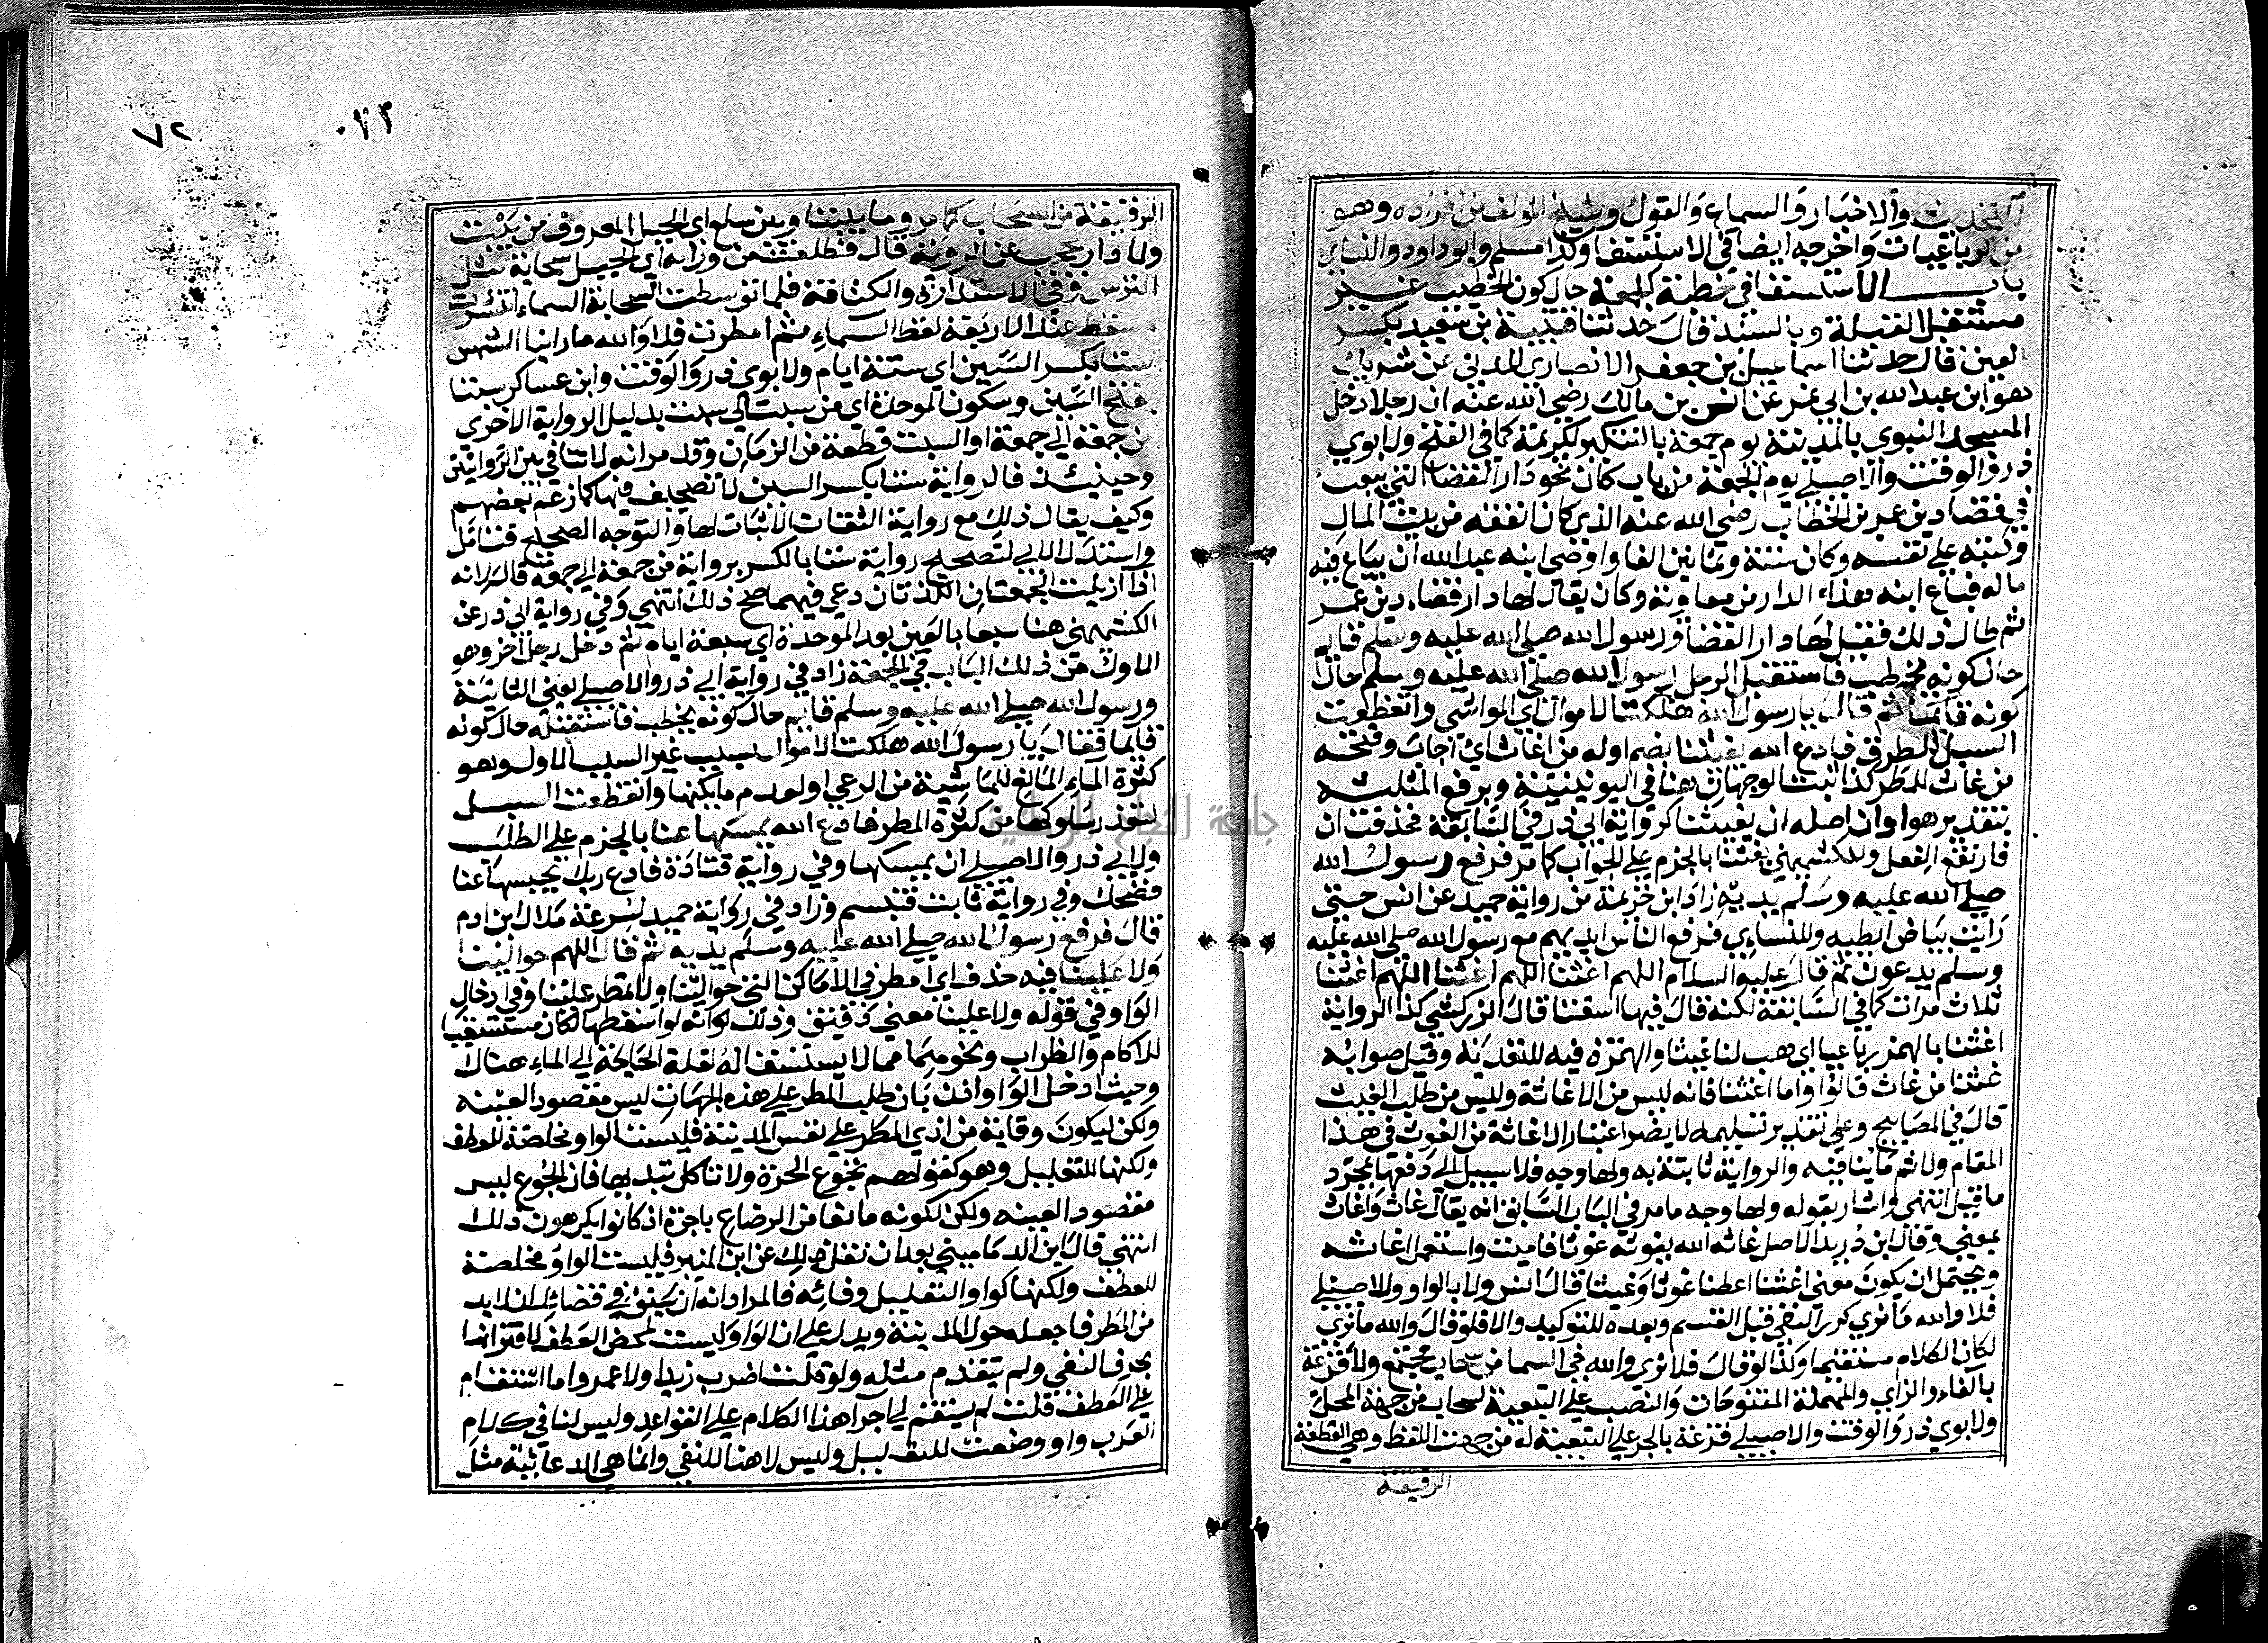 التحديث والاخبار والسماع والقول وشيخ المولف من افراده وهو
من الرباعيات واخرجه ايضا في الاستسقا وكذا مسلم وابو داود والنساي
باب الاستسقا في خطبة الجمعة حال كون الخطيب غير
مستقبل القبلة وبالسند قال حدثنا قتيبة بن سعيد بكسر
العين قال حدثنا اسماعيل بن جعفر الانصاري المدني عن شريك
هو ابن عبد الله بن ابي نمر عن انس بن مالك رضي الله عنه ان رجلا دخل
المسجد النبوي بالمدينة يوم جمعة بالتنكير لكريمة كما في الفتح ولابوي
ذر والوقت والاصيلي يوم الجمعة من باب كان نحو دار القضا التي بيعت
في قضا دين عمر بن الخطاب رضي الله عنه الذي كان انفقه من بيت المال
وكتبه على نفسه وكان ستة وثمانين الفا واوصى ابنه عبد الله ان يباع فيه
ماله فباع ابنه هذه الدار من معاوية وكان يقال لها دار قضاء دين عمر
ثم طال ذلك فقيل لها دار القضا ورسول الله صلى الله عليه وسلم قايم
حال كونه يخطب فاستقبل الرجل رسول الله صلى الله عليه وسلم حال
كونه قايما ثم قال يا رسول الله هلكت الاموال اي المواشي وانقطعت
السبل الطرق فادع الله يغيثنا بضم اوله من اغاث اي اجاب وفتحه
من غاث للمطر كذا ثبت الوجهان هنا في اليونينية وبرفع المثلثة
بتقدير هو او ان اصله ان يغيثنا كرواية ابي ذر في السابقة فحذفت ان
فارتفع الفعل وللكشميهني يغثنا بالجزم على الجواب كما مر فرفع رسول الله
صلى الله عليه وسلم يديه زاد ابن خزيمة من رواية حميد عن انس حتى
رايت بياض ابطيه وللنساءي فرفع الناس ايديهم مع رسول الله صلى الله عليه
وسلم يدعون ثم قال عليه السلام اللهم اغثنا اللهم اغثنا اللهم اغثنا
ثلاث مرات كما في السابقة لكنه قال فيها اسقنا قال الزركشي كذا الرواية
اغثنا بالهمز رباعيا اي هب لنا غيثا والهمزة فيه للتعدية وقيل صوابه
غثنا من غاث قالوا واما اغثنا فانه ليس من الاغاثة وليس من طلب الغيث
قال في المصابيح وعلى تقدير تسليمه لا يضر اعتبار الاغاثة من الغوث في هذا
المقام ولا ثم ما ينافيه والرواية ثابتة به ولها وجه فلا سبيل الى دفعها بمجرد
ما قيل انتهى واشار بقوله ولها وجه ما مر في الباب السابق انه يقال غاث واغاث
بمعنى وقال ابن دريد الاصل غاثه الله يغوثه غوثا فاميت واستعمل اغاثه
ويحتمل ان يكون معنى اغثنا اعطنا غوثا وغيثا قال انس ولا بالواو وللاصيلي
فلا والله ما نرى كرر النفي قبل القسم وبعده للتوكيد والا فلو قال والله ما نرى
لكان الكلام مستقيما وكذا لو قال فلا نرى والله في السما من سحاب مجتمع ولا قزعة
بالقاف والزاي والمهملة المفتوحات والنصب على التبعية لسحاب من جهة المحل
ولابوي ذر والوقت والاصيلي قزعة بالجر على التبعية له من جهة اللفظ وهي القطعة
الرقيقة
٠٢٢
٧٢
الرقيقة من السحاب كما مر وما بيننا وبين سلع اي الجبل المعروف من بيت
ولا دار يحجب عن الروية قال فطلعت من ورائه اي الجبل سحابة مثل
الترس في الاستدارة والكثافة فلما توسطت السحابة السماء انتشرت
سقط عند الاربعة لفظ السماء ثم امطرت فلا والله ما راينا الشمس
ستا بكسر السين اي ستة ايام ولابوي ذر والوقت وابن عساكر سبتا
بفتح السين وسكون الموحدة اي من سبت الى سبت بدليل الرواية الاخرى
من جمعة الى جمعة او السبت قطعة من الزمان وقد مر انه لا تنافي بين الروايتين
وحينئذ فالرواية ستا بكسر السين لا تصحيف فيها كما زعم بعضهم
وكيف يقال ذلك مع رواية الثقات الاثبات لها والتوجه الصحيح فتامل
واستدل الابي لتصحيح رواية ستا بالكسر برواية من جمعة الى جمعة قال لانه
اذا ازيلت الجمعتان اللذتان دعي فيهما صح ذلك انتهى وفي رواية ابي ذر عن
الكشميهني هنا سبعا بالعين بعد الموحدة اي سبعة ايام ثم دخل رجل اخر وهو
الاول من ذلك الباب في الجمعة زاد في رواية ابي ذر والاصيلي يعني الثانية
ورسول الله صلى الله عليه وسلم قايم حال كونه يخطب فاستقبله حال كونه
قايما فقال يا رسول الله هلكت الاموال بسبب غير السبب الاول وهو
كثرة الماء المانع للماشية من الرعي او لعدم ما يكنها وانقطعت السبل
لتعذر سلوكها من كثرة المطر فادع الله يمسكها عنا بالجزم على الطلب
ولابي ذر والاصيلي ان يمسكها وفي رواية قتادة فادع ربك يحبسها عنا
فضحك وفي رواية ثابت فتبسم وزاد في رواية حميد لسرعة ملال ابن ادم
قال فرفع رسول الله صلى الله عليه وسلم يديه ثم قال اللهم حوالينا
ولا علينا فيه حذف اي امطر في الاماكن التي حوالينا ولا تمطر علينا وفي ادخال
الواو في قوله ولا علينا معنى دقيق وذلك لوانه لو اسقطها لكان مستسقيا
للاكام والظراب ونحوهما مما لا يستسقى له لقلة الحاجة الى الماء هناك
وحيث ادخل الواو اذن بان طلب المطر على هذه الجهات ليس مقصود العينه
ولكن ليكون وقاية من اذى المطر على نفس المدينة فليست الواو مخلصة للعطف
ولكنها للتعليل وهو كقولهم تجوع الحرة ولا تاكل بثدييها فان الجوع ليس
مقصود العينه ولكن لكونه مانعا من الرضاع باجرة اذ كانوا يكرهون ذلك
انتهى قال ابن الدماميني بعد ان نقل ذلك عن ابن المنير فليست الواو مخلصة
للعطف ولكنها كواو التعليل وفائه فالمراد انه ان سبق في قضائك ان لا بد
من المطر فاجعله حول المدينة ويدل على ان الواو ليست لمحض العطف اقترانها
بحرف النفي ولم يتقدم مثله ولو قلت اضرب زيدا ولا عمروا ما استقام
على العطف قلت لم يستقم لي اجرا هذا الكلام على القواعد وليس لنا في كلام
العرب واو وضعت للتعليل وليس لا هنا للنفي وانما هي الدعائية مثل